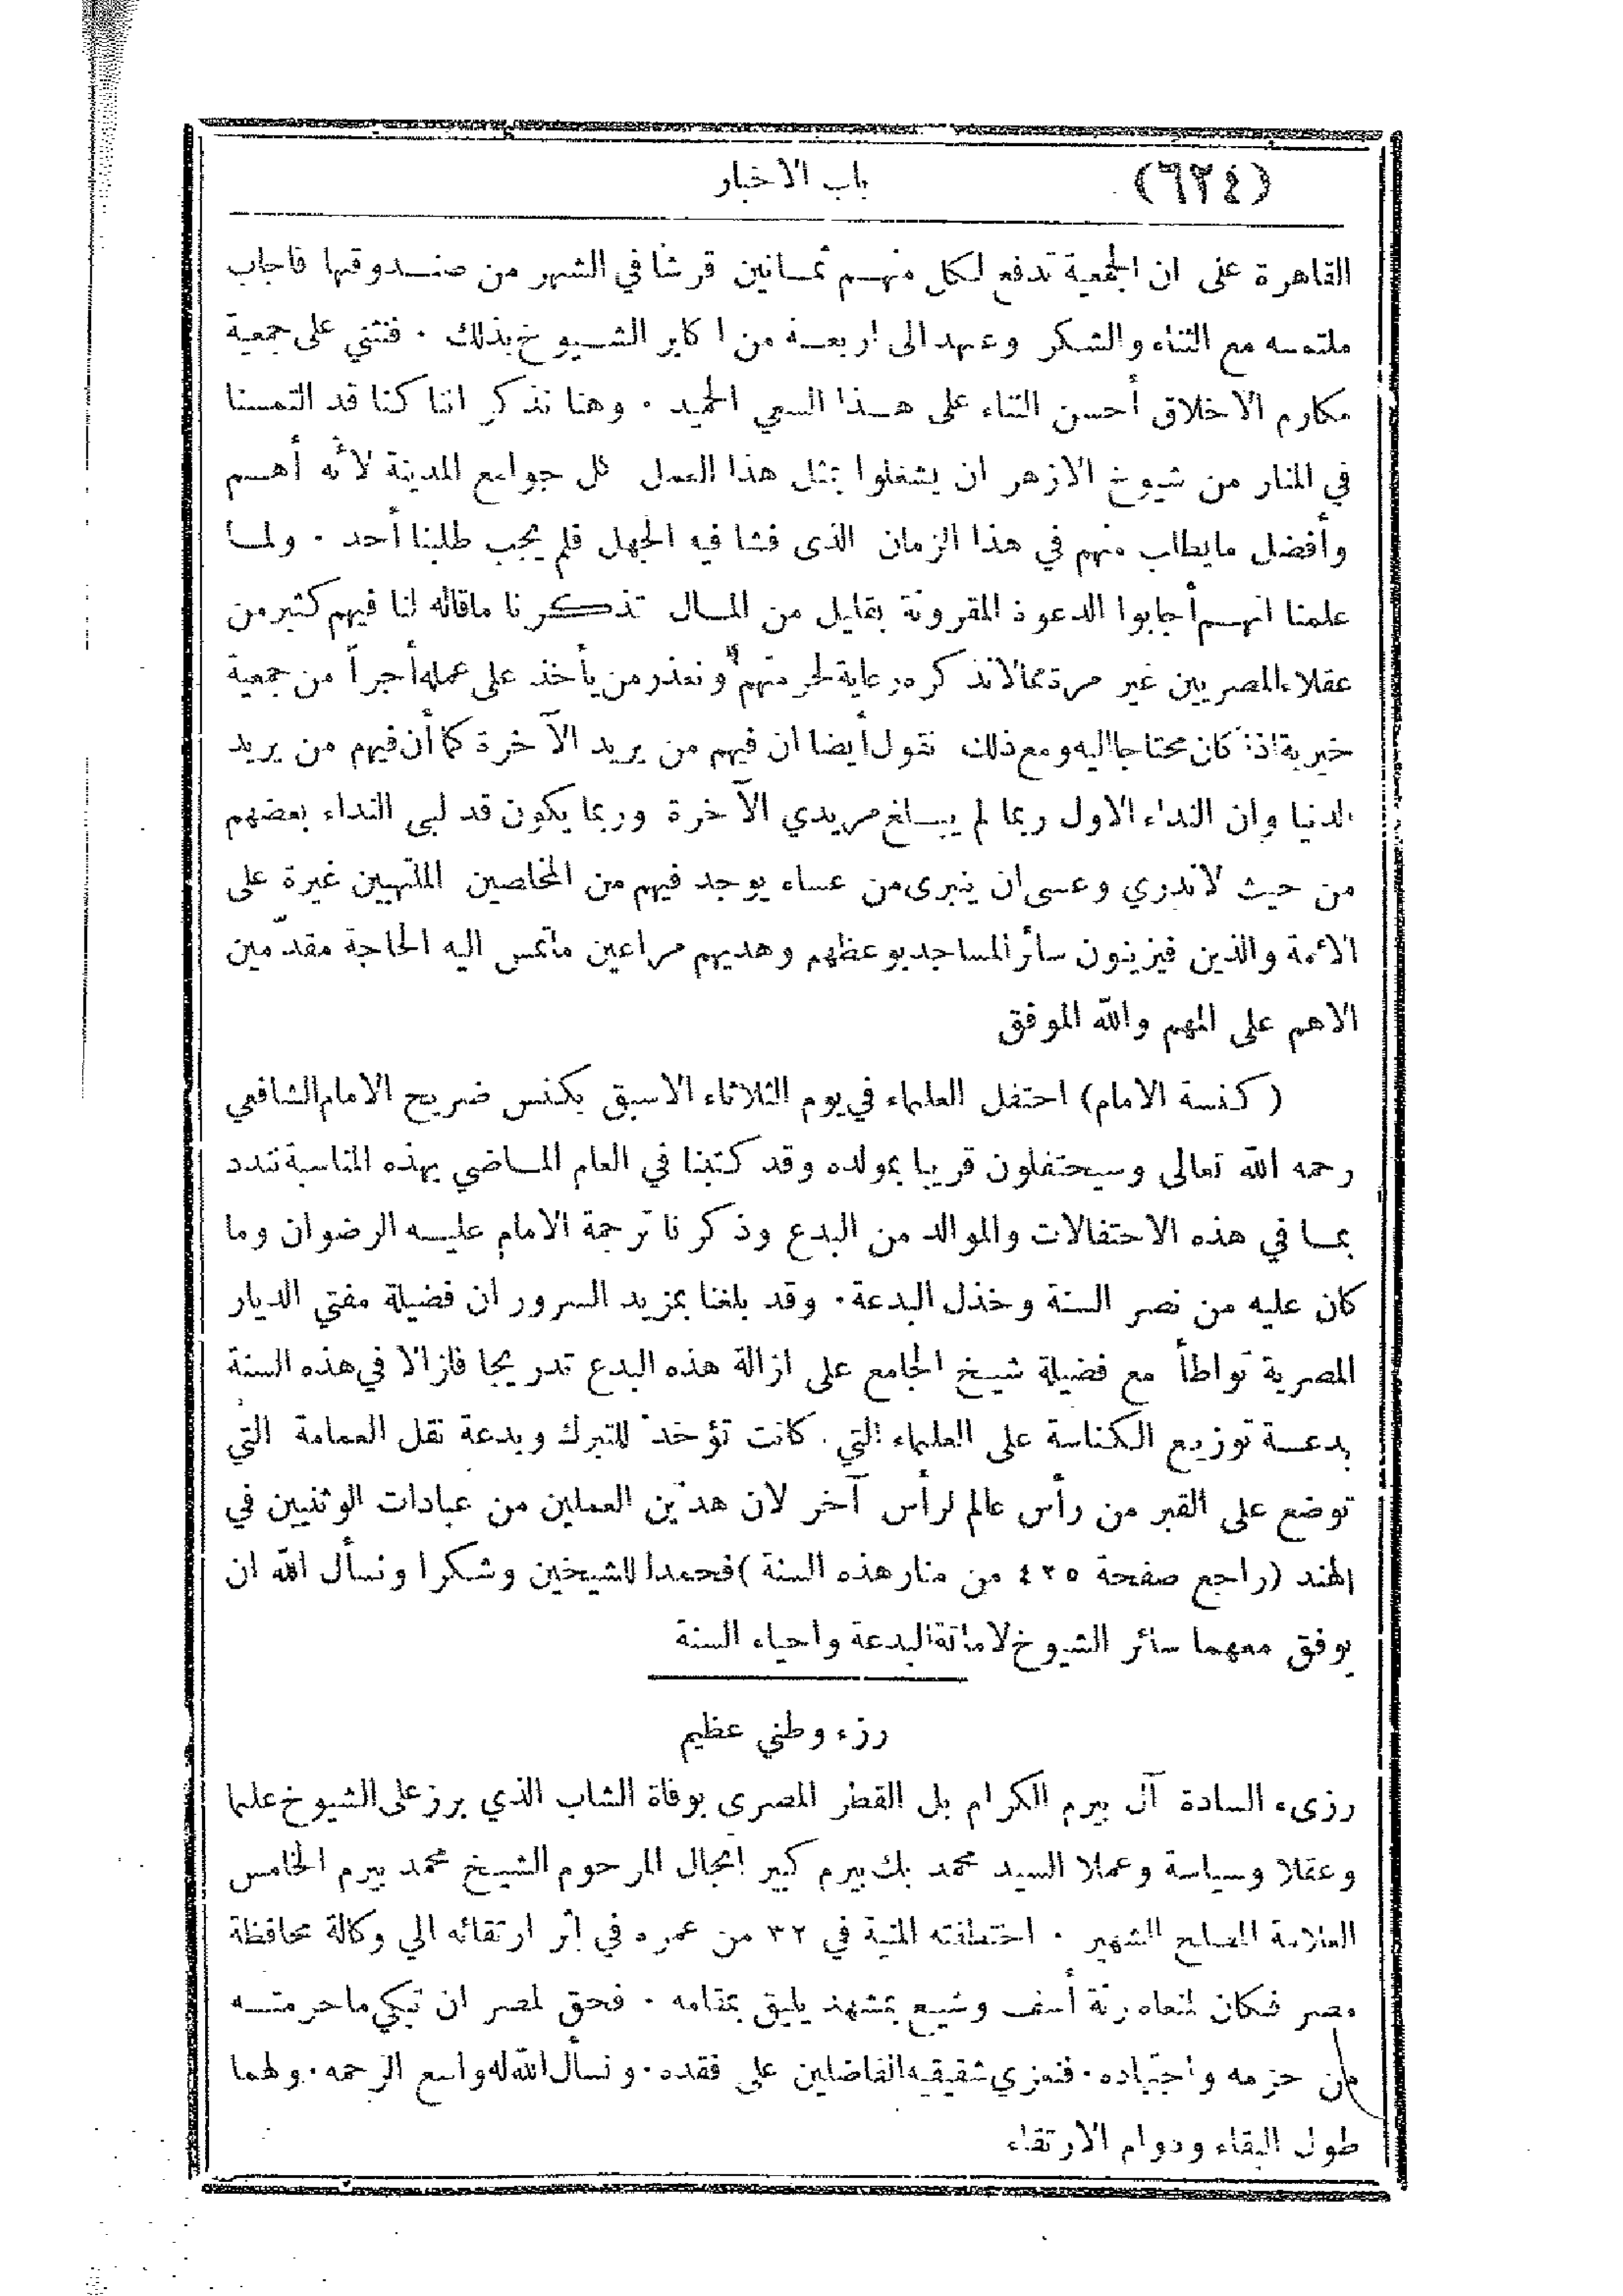 (٦٢٤) باب الاخبار
القاهرة على ان الجمعية تدفع لكل منهم ثمانين قرشا في الشهر من صندوقها فاجاب
ملتمسه مع الثناء والشكر وعهد الى اربعة من اكابر الشيوخ بذلك . فنثني على جمعية
مكارم الاخلاق أحسن الثناء على هذا السعي الحميد . وهنا نذكر اننا كنا قد التمسنا
في المنار من شيوخ الازهر ان يشغلوا بمثل هذا العمل كل جوامع المدينة لأنه أهم
وأفضل مايطلب منهم في هذا الزمان الذى فشا فيه الجهل فلم يجب طلبنا أحد . ولما
علمنا انهم أجابوا الدعوة المقرونة بقليل من المال تذكرنا ماقاله لنا فيهم كثير من
عقلاء المصريين غير مرة مما لانذكره رعاية لحرمتهم ونعذر من يأخذ على عمله أجراً من جمعية
خيرية اذا كان محتاجا اليه ومع ذلك نقول أيضا ان فيهم من يريد الآخرة كما أن فيهم من يريد
الدنيا وان النداء الاول ربما لم يبلغ مريدي الآخرة وربما يكون قد لبى النداء بعضهم
من حيث لاندري وعسى ان ينبرى من عساه يوجد فيهم من المخلصين الملتهبين غيرة على
الائمة والذين فيزينون سائر المساجد بوعظهم وهديهم مراعين ماتمس اليه الحاجة مقدّمين
الاهم على المهم والله الموفق
( كنسة الامام ) احتفل العلماء في يوم الثلاثاء الاسبق بكنس ضريح الامام الشافعي
رحمه الله تعالى وسيحتفلون قريبا بمولده وقد كتبنا في العام الماضي بهذه المناسبة نندد
بما في هذه الاحتفالات والموالد من البدع وذكرنا ترجمة الامام عليه الرضوان وما
كان عليه من نصر السنة وخذل البدعة . وقد بلغنا بمزيد السرور ان فضيلة مفتي الديار
المصرية تواطأ مع فضيلة شيخ الجامع على ازالة هذه البدع تدريجا فازالا في هذه السنة
بدعة توزيع الكناسة على العلماء التي كانت تؤخذ للتبرك وبدعة نقل العمامة التي
توضع على القبر من رأس عالم لرأس آخر لان هذين العملين من عبادات الوثنيين في
الهند (راجع صفحة ٤٢٥ من منار هذه السنة) فحمدا للشيخين وشكرا ونسأل الله ان
يوفق معهما سائر الشيوخ لاماتة البدعة واحياء السنة
رزء وطني عظيم
رزىء السادة آل بيرم الكرام بل القطر المصرى بوفاة الشاب الذي برز على الشيوخ علما
وعقلا وسياسة وعملا السيد محمد بك بيرم كبير انجال المرحوم الشيخ محمد بيرم الخامس
العلامة المصلح الشهير . اختطفته المنية في ٣٢ من عمره في إثر ارتقائه الي وكالة محافظة
مصر فكان لمنعاه رنة أسف وشيع بمشهد يليق بمقامه . فحق لمصر ان تبكي ماحرمته
من حزمه واجتهاده . فنعزي شقيقيه الفاضلين على فقده . ونسأل الله له واسع الرحمه . ولهما
طول البقاء ودوام الارتقاء